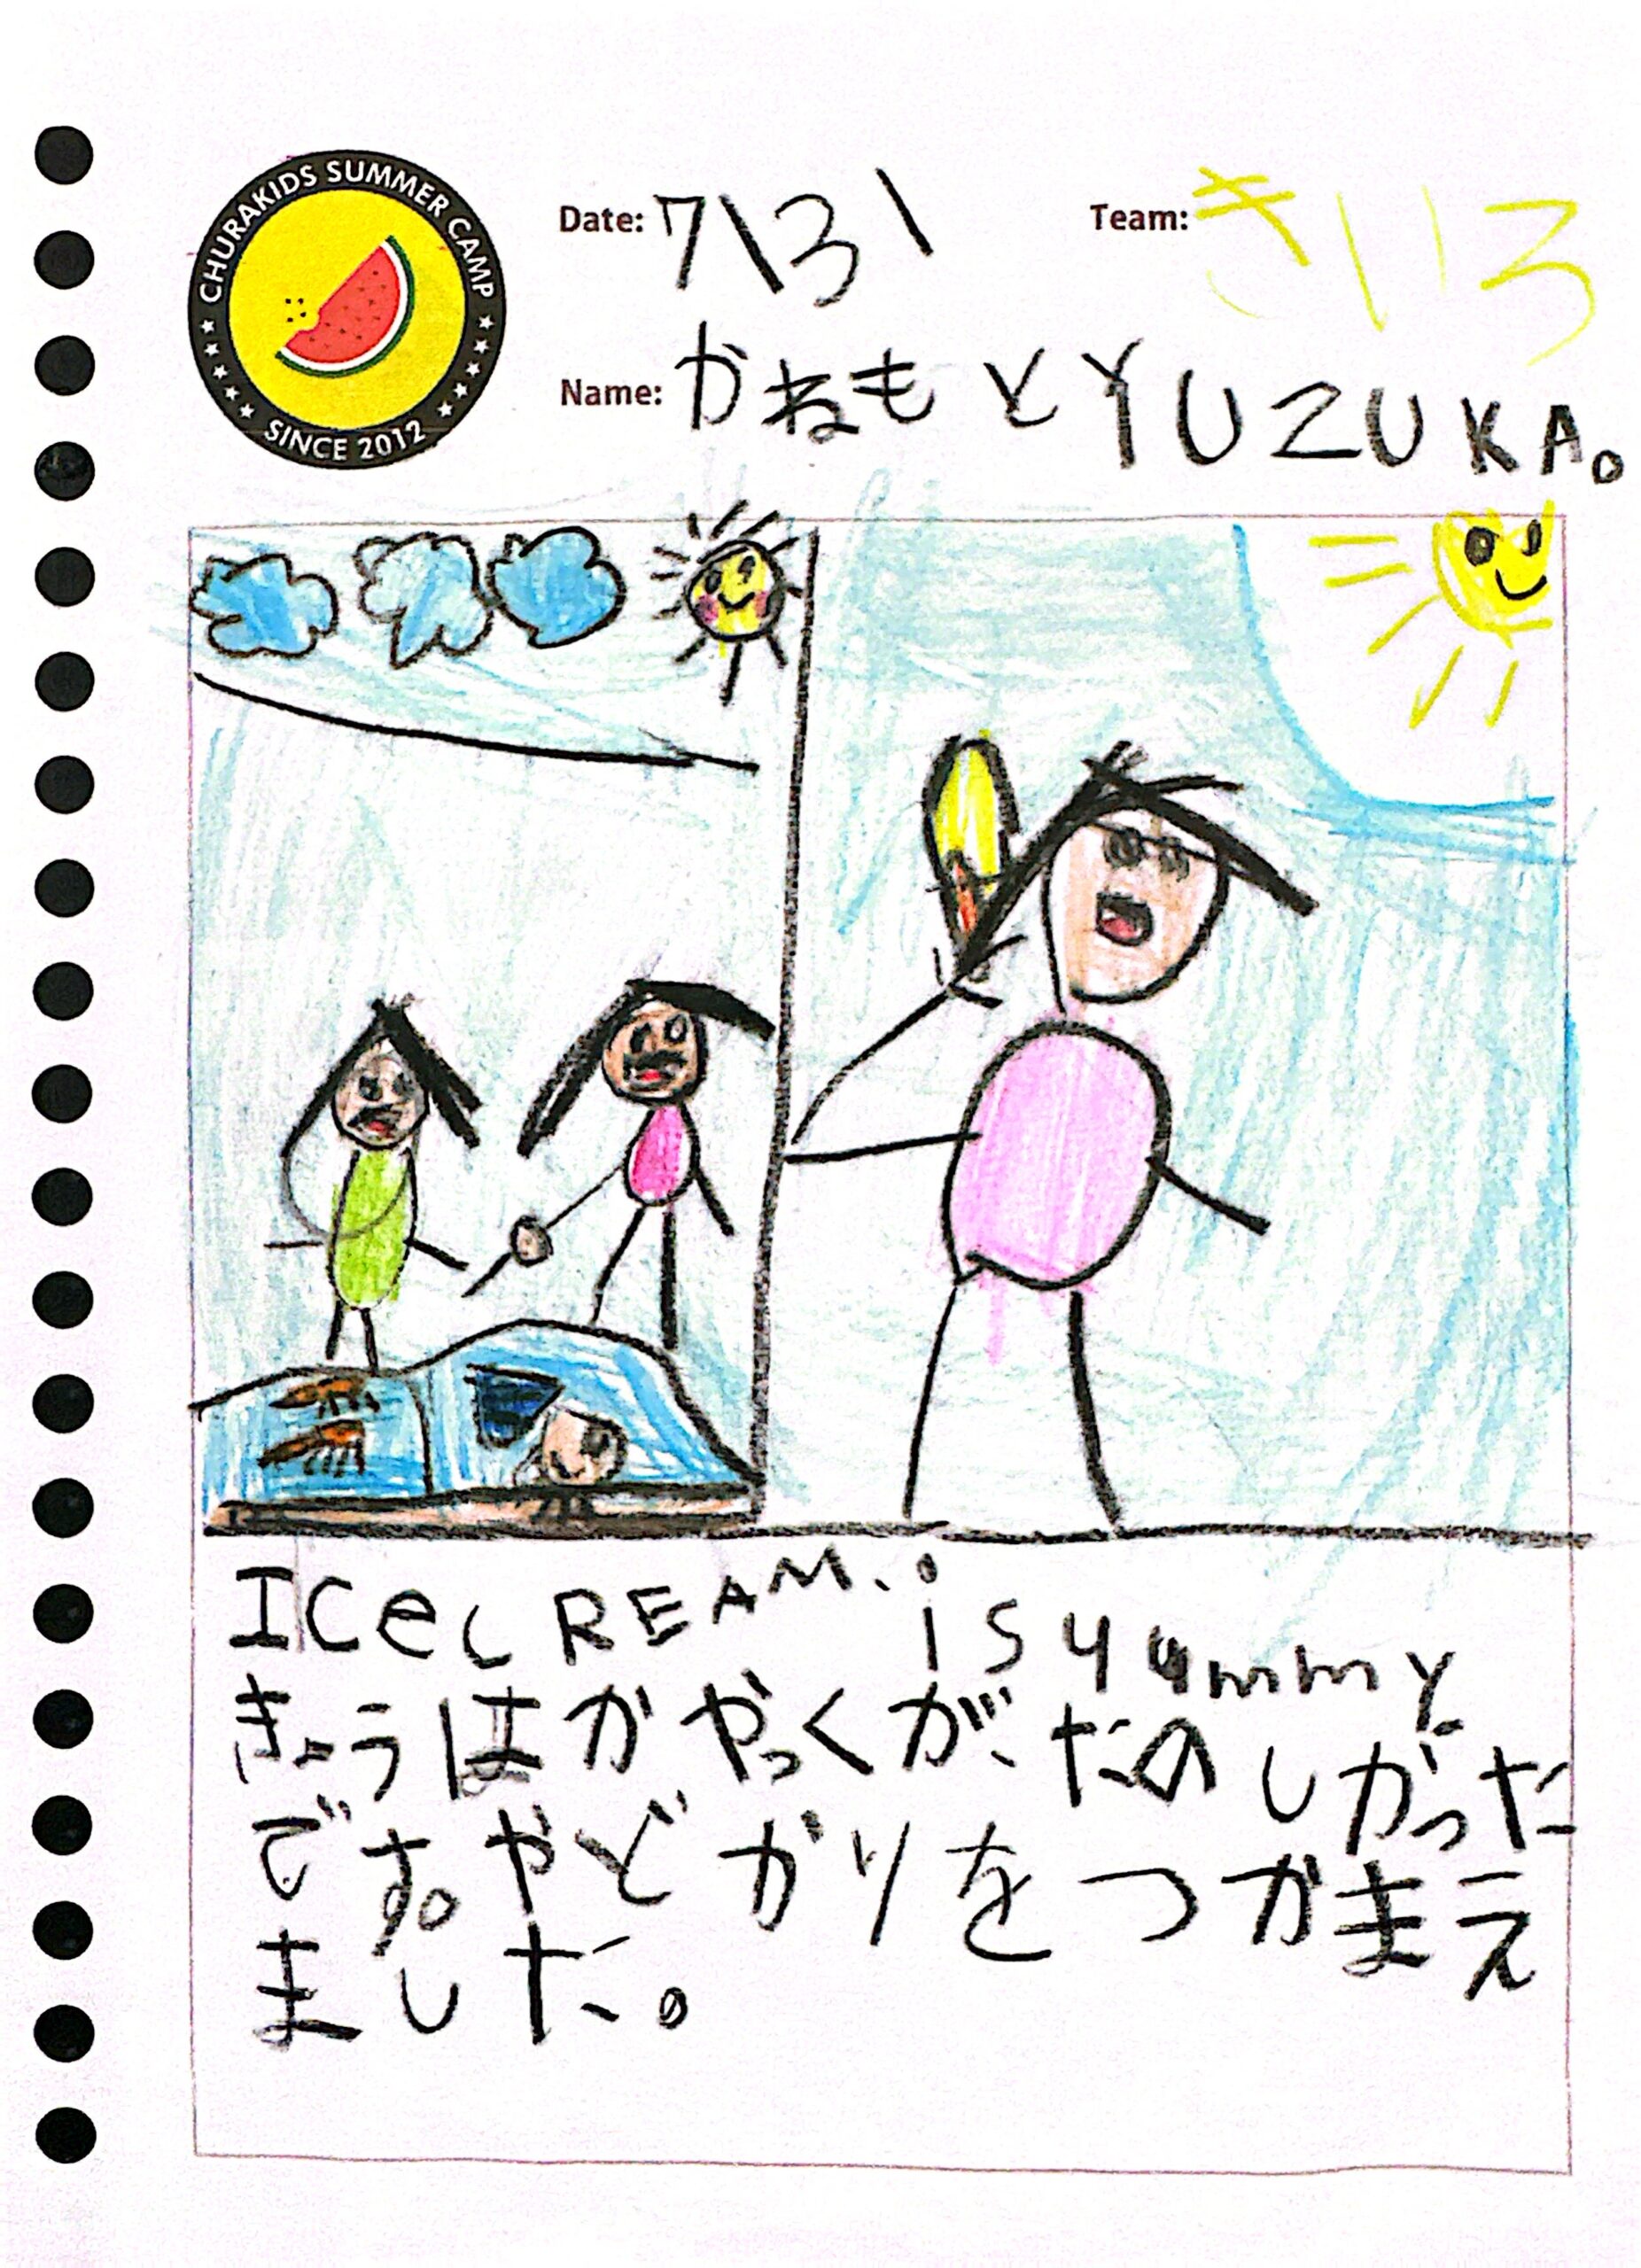 CHURAKIDS SUMMER CAMP
SINCE 2012
Date: 7\31
Team: きいろ
Name: かねもとYUZUKA。
ICeCREAM. is yummy
きょうはかやっくが、たのしかった
です。やどかりをつかまえ
ました。